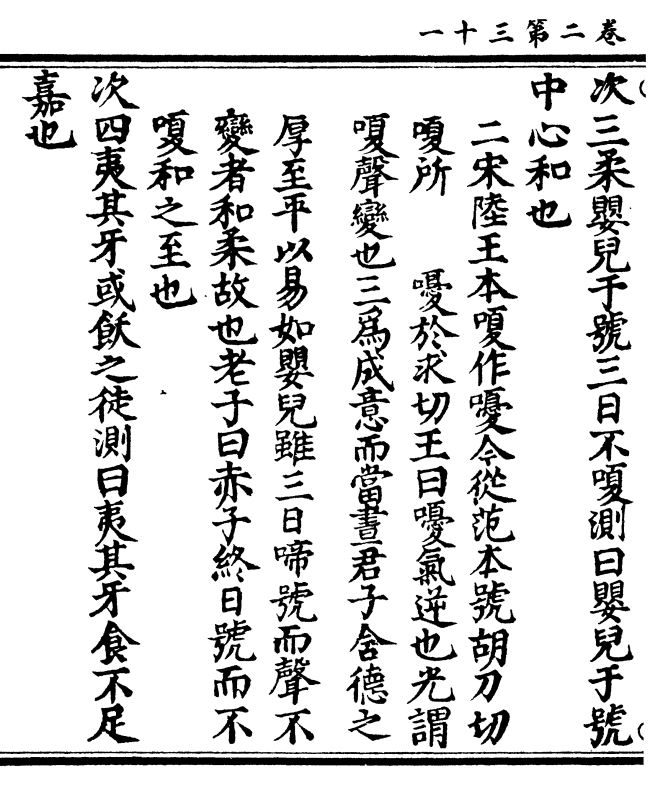 卷二第三十一
次三柔嬰兒于號三日不嗄測曰嬰兒于號
中心和也
二宋陸王本嗄作嚘今從范本號胡刀切
嗄所　　嚘於求切王曰嚘氣逆也光謂
嗄聲變也三爲成意而當晝君子含德之
厚至平以易如嬰兒雖三日啼號而聲不
變者和柔故也老子曰赤子終日號而不
嗄和之至也
次四夷其牙或飫之徒測曰夷其牙食不足
嘉也